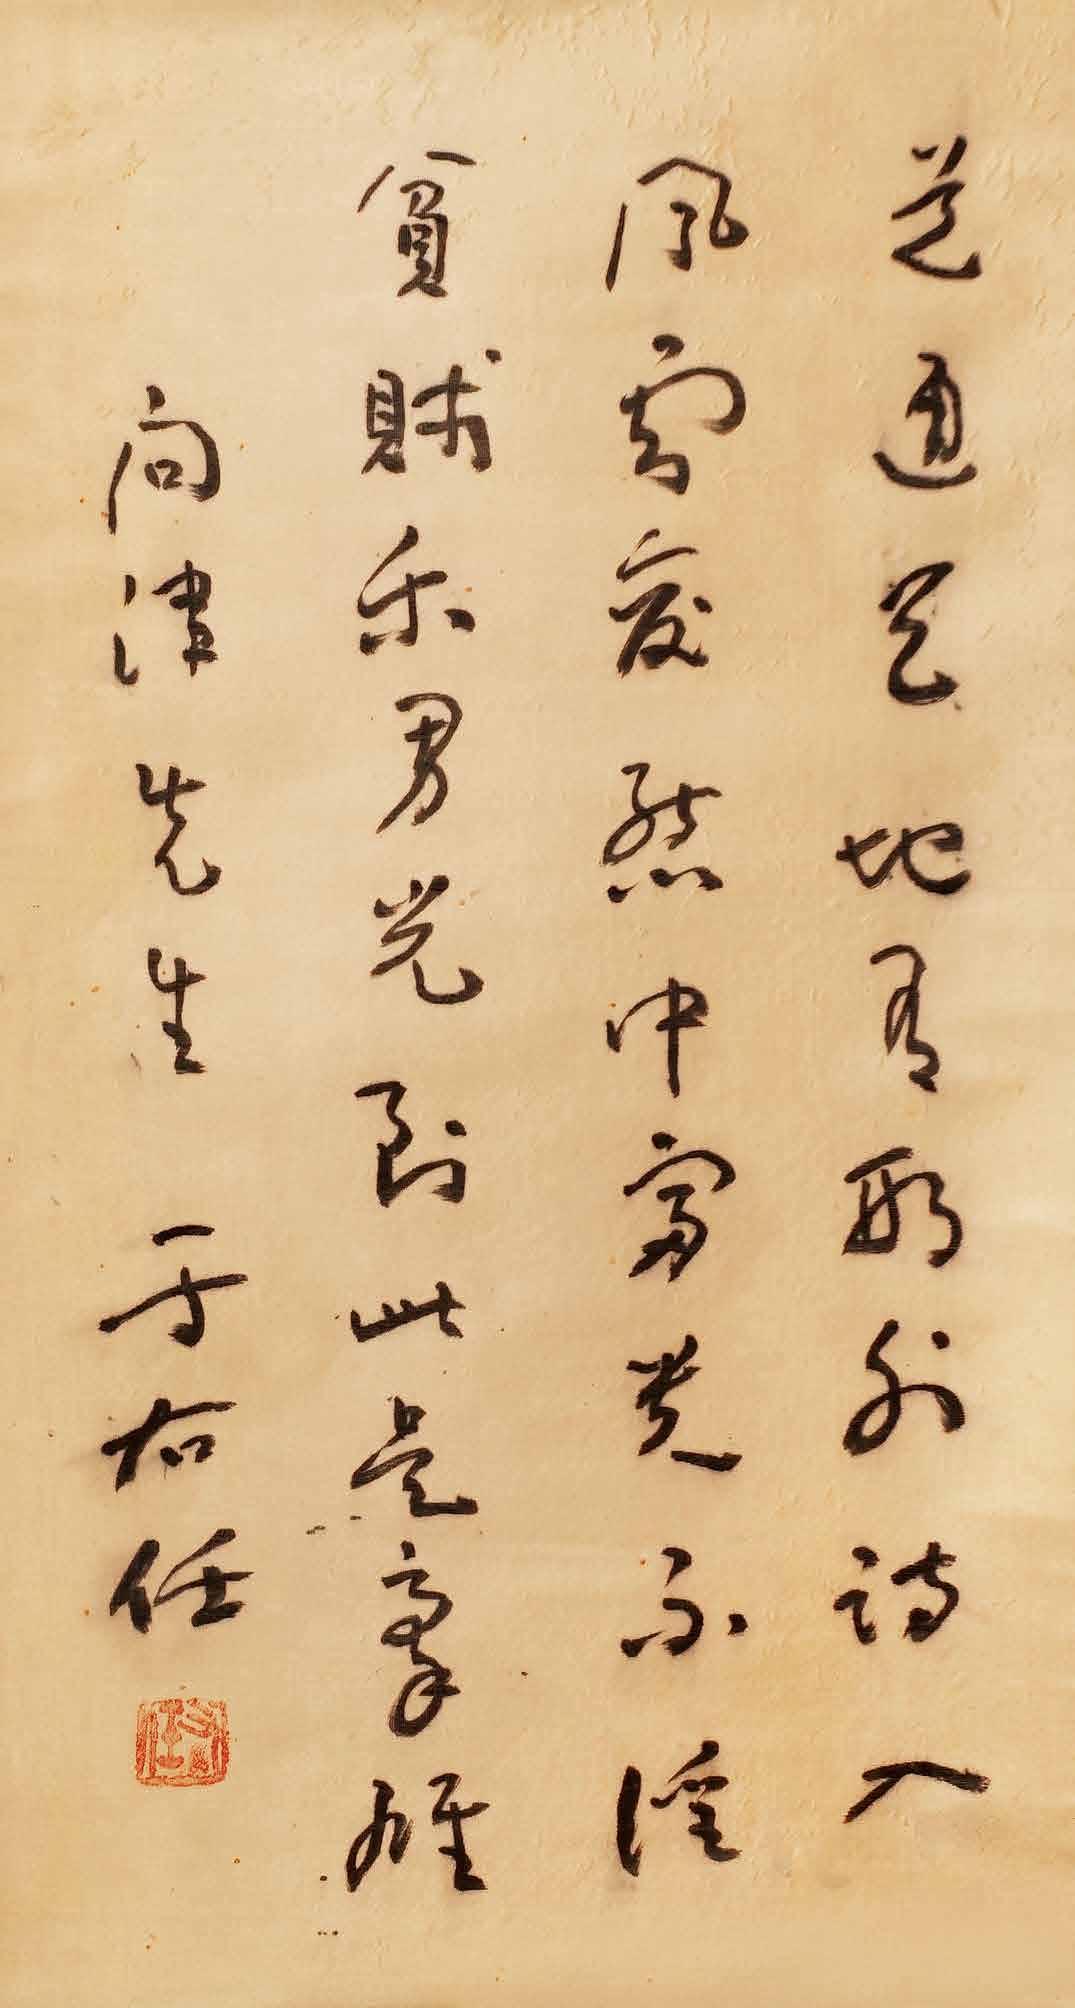 道通天地有形外詩入
風雲變態中富貴不淫
貧賤樂男兒到此是豪雄
向津先生 于右任
右任